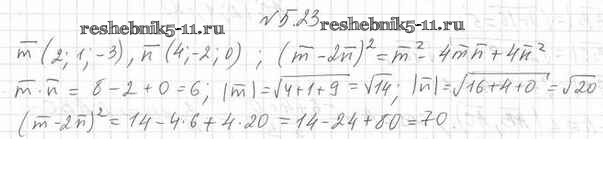 №5.23
reshebnik5-11.ru reshebnik5-11.ru
m̅(2; 1; -3), n̅(4; -2; 0) ; (m̅ - 2n̅)² = m̅² - 4m̅n̅ + 4n̅²
m̅·n̅ = 8 - 2 + 0 = 6; |m̅| = √4+1+9 = √14; |n̅| = √16+4+0 = √20
(m̅ - 2n̅)² = 14 - 4·6 + 4·20 = 14 - 24 + 80 = 70